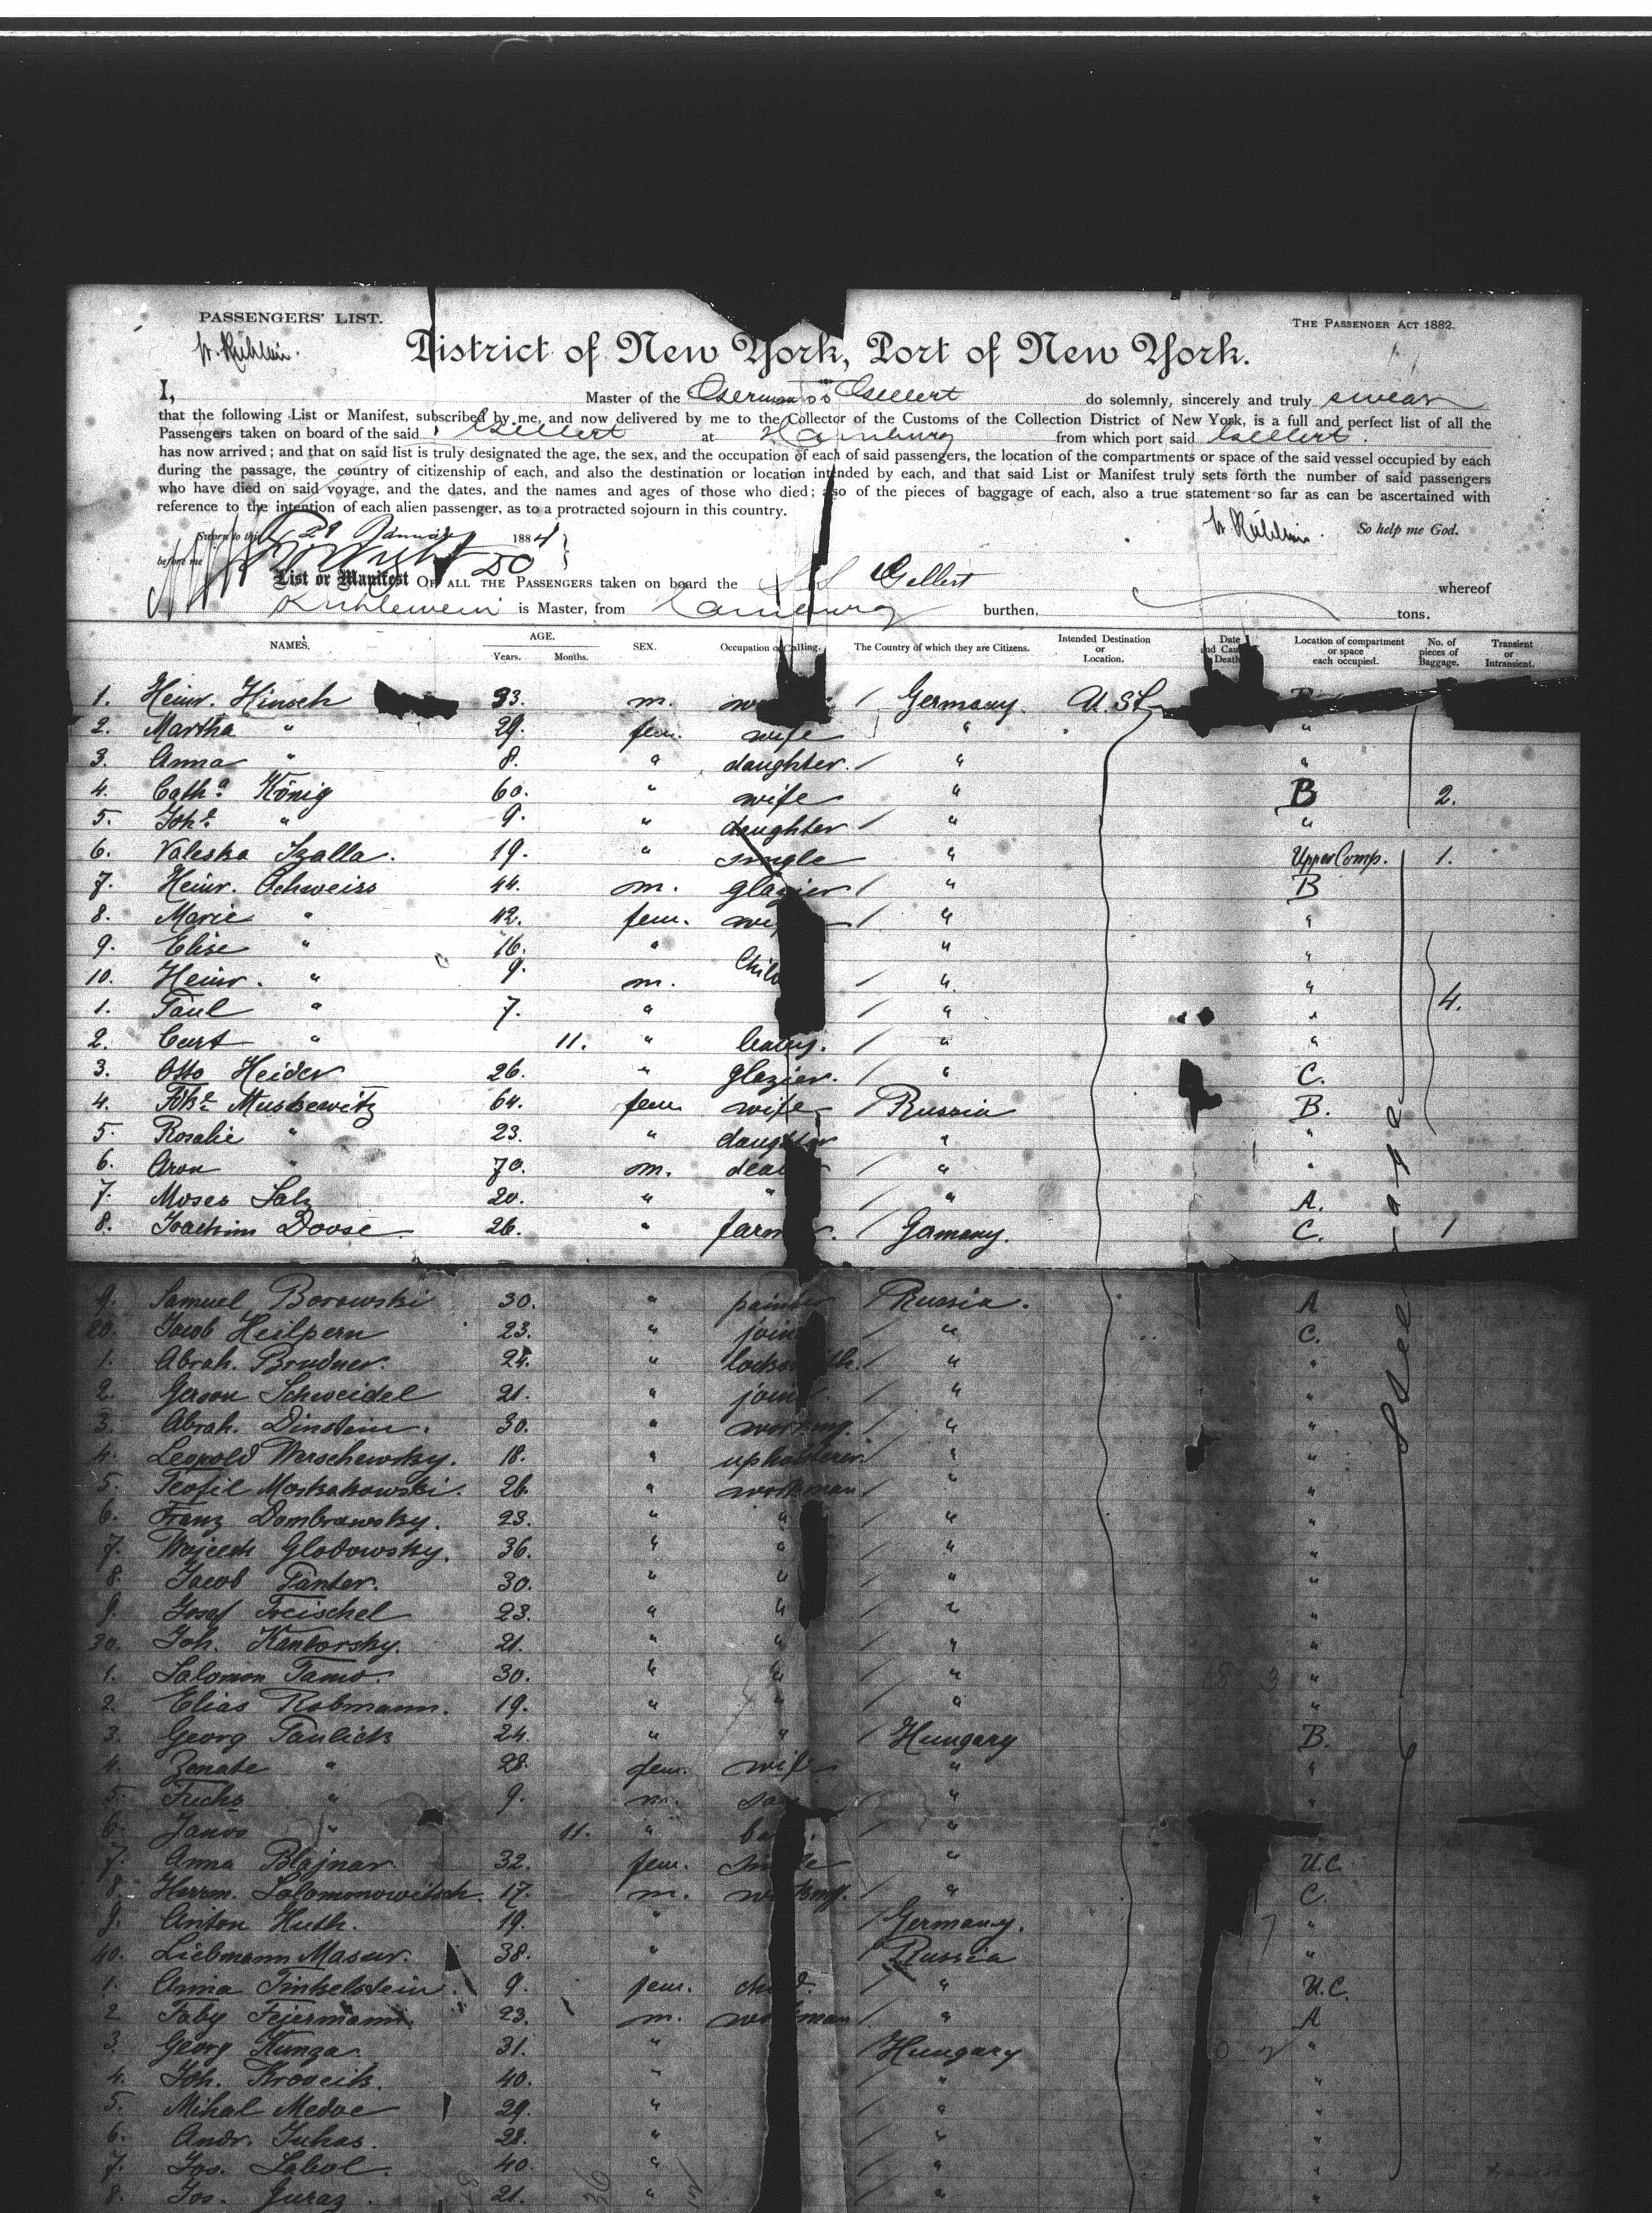 PASSENGERS' LIST.
THE PASSENGER ACT 1882.
District of New York, Port of New York.
I, Master of the German SS Gellert do solemnly, sincerely and truly swear
that the following List or Manifest, subscribed by me, and now delivered by me to the Collector of the Customs of the Collection District of New York, is a full and perfect list of all the
Passengers taken on board of the said Gellert at Hamburg from which port said Gellert.
has now arrived; and that on said list is truly designated the age, the sex, and the occupation of each of said passengers, the location of the compartments or space of the said vessel occupied by each
during the passage, the country of citizenship of each, and also the destination or location intended by each, and that said List or Manifest truly sets forth the number of said passengers
who have died on said voyage, and the dates, and the names and ages of those who died; also of the pieces of baggage of each, also a true statement so far as can be ascertained with
reference to the intention of each alien passenger, as to a protracted sojourn in this country.
So help me God.
Sworn to this 29 January 1884
before me
List or Manifest OF ALL THE PASSENGERS taken on board the SS Gellert whereof
Kuhlewein is Master, from Hamburg burthen, tons.
NAMES. AGE. Years. Months. SEX. Occupation or Calling. The Country of which they are Citizens. Intended Destination or Location. Date and Cause Death Location of compartment or space each occupied. No. of pieces of Baggage. Transient or Intransient.
1. Heinr. Hinsch 33. m. / Germany. U. St.
2. Martha " 29. fem. wife " "
3. Anna " 8. " daughter. / " "
4. Cath.a König 60. " wife " B 2.
5. Joh.e " 9. " daughter / " "
6. Valeska Szalla. 19. " single " Upper Comp. 1.
7. Heinr. Schweiss 44. m. glazier / " B
8. Marie " 42. fem. / " "
9. Elise " 16. " " "
10. Heinr. " 9. m. / " "
1. Paul " 7. " / " " 4.
2. Curt " 11. " / " "
3. Otto Heider 26. " glazier. / " C.
4. Joh.e Muskewitz 64. fem. wife / Russia B.
5. Rosalie " 23. " daughter " "
6. Aron " 70. m. / " "
7. Moses Salz 20. " " / " A.
8. Joachim Doose. 26. " / Gamany. C. 1
9. Samuel Borowski 30. " painter / Russia. A
20. Jacob Heilpern 23. " / " C.
1. Abrah. Brudner. 24. " locksmith. / " "
2. Gerson Schweidel 21. " / " "
3. Abrah. Dinstein. 30. " / " "
4. Leopold Werschewsky. 18. " upholsterer / " "
5. Teofil Moskakowski. 26. " workman / " "
6. Franz Dombrawsky. 23. " " / " "
7. Wojcech Glodowsky. 36. " " / " "
8. Jacob Panter. 30. " " / " "
9. Josef Treischel 23. " " / " "
30. Joh. Kantorsky. 21. " " / " "
1. Salomon Tamo. 30. " " / " "
2. Elias Robmann. 19. " " / " "
3. Georg Paulick 24. " " / Hungary B.
4. Zenate " 28. fem. wife " "
5. Fuchs " 9. m. " "
6. Janos " 11. " "
7. Anna Blajnar. 32. fem. single " U.C.
8. Herrm. Salomonowitsch. 17. m. / " C.
9. Anton Huth. 19. " / Germany. "
40. Liebmann Masur. 38. " / Russia "
1. Anna Finkelstein. 9. fem. child. / " U.C.
2 Faby Fejermann. 23. m. workman / " A
3. Georg Kunza. 31. " / Hungary "
4. Joh. Krocik. 40. " / " "
5. Mihal Medve 29. " / " "
6. Andr. Juhas. 28. " / " "
7. Jos. Sabol. 40. " / " "
8. Jos. Guraz. 21. " / " "
Steerage